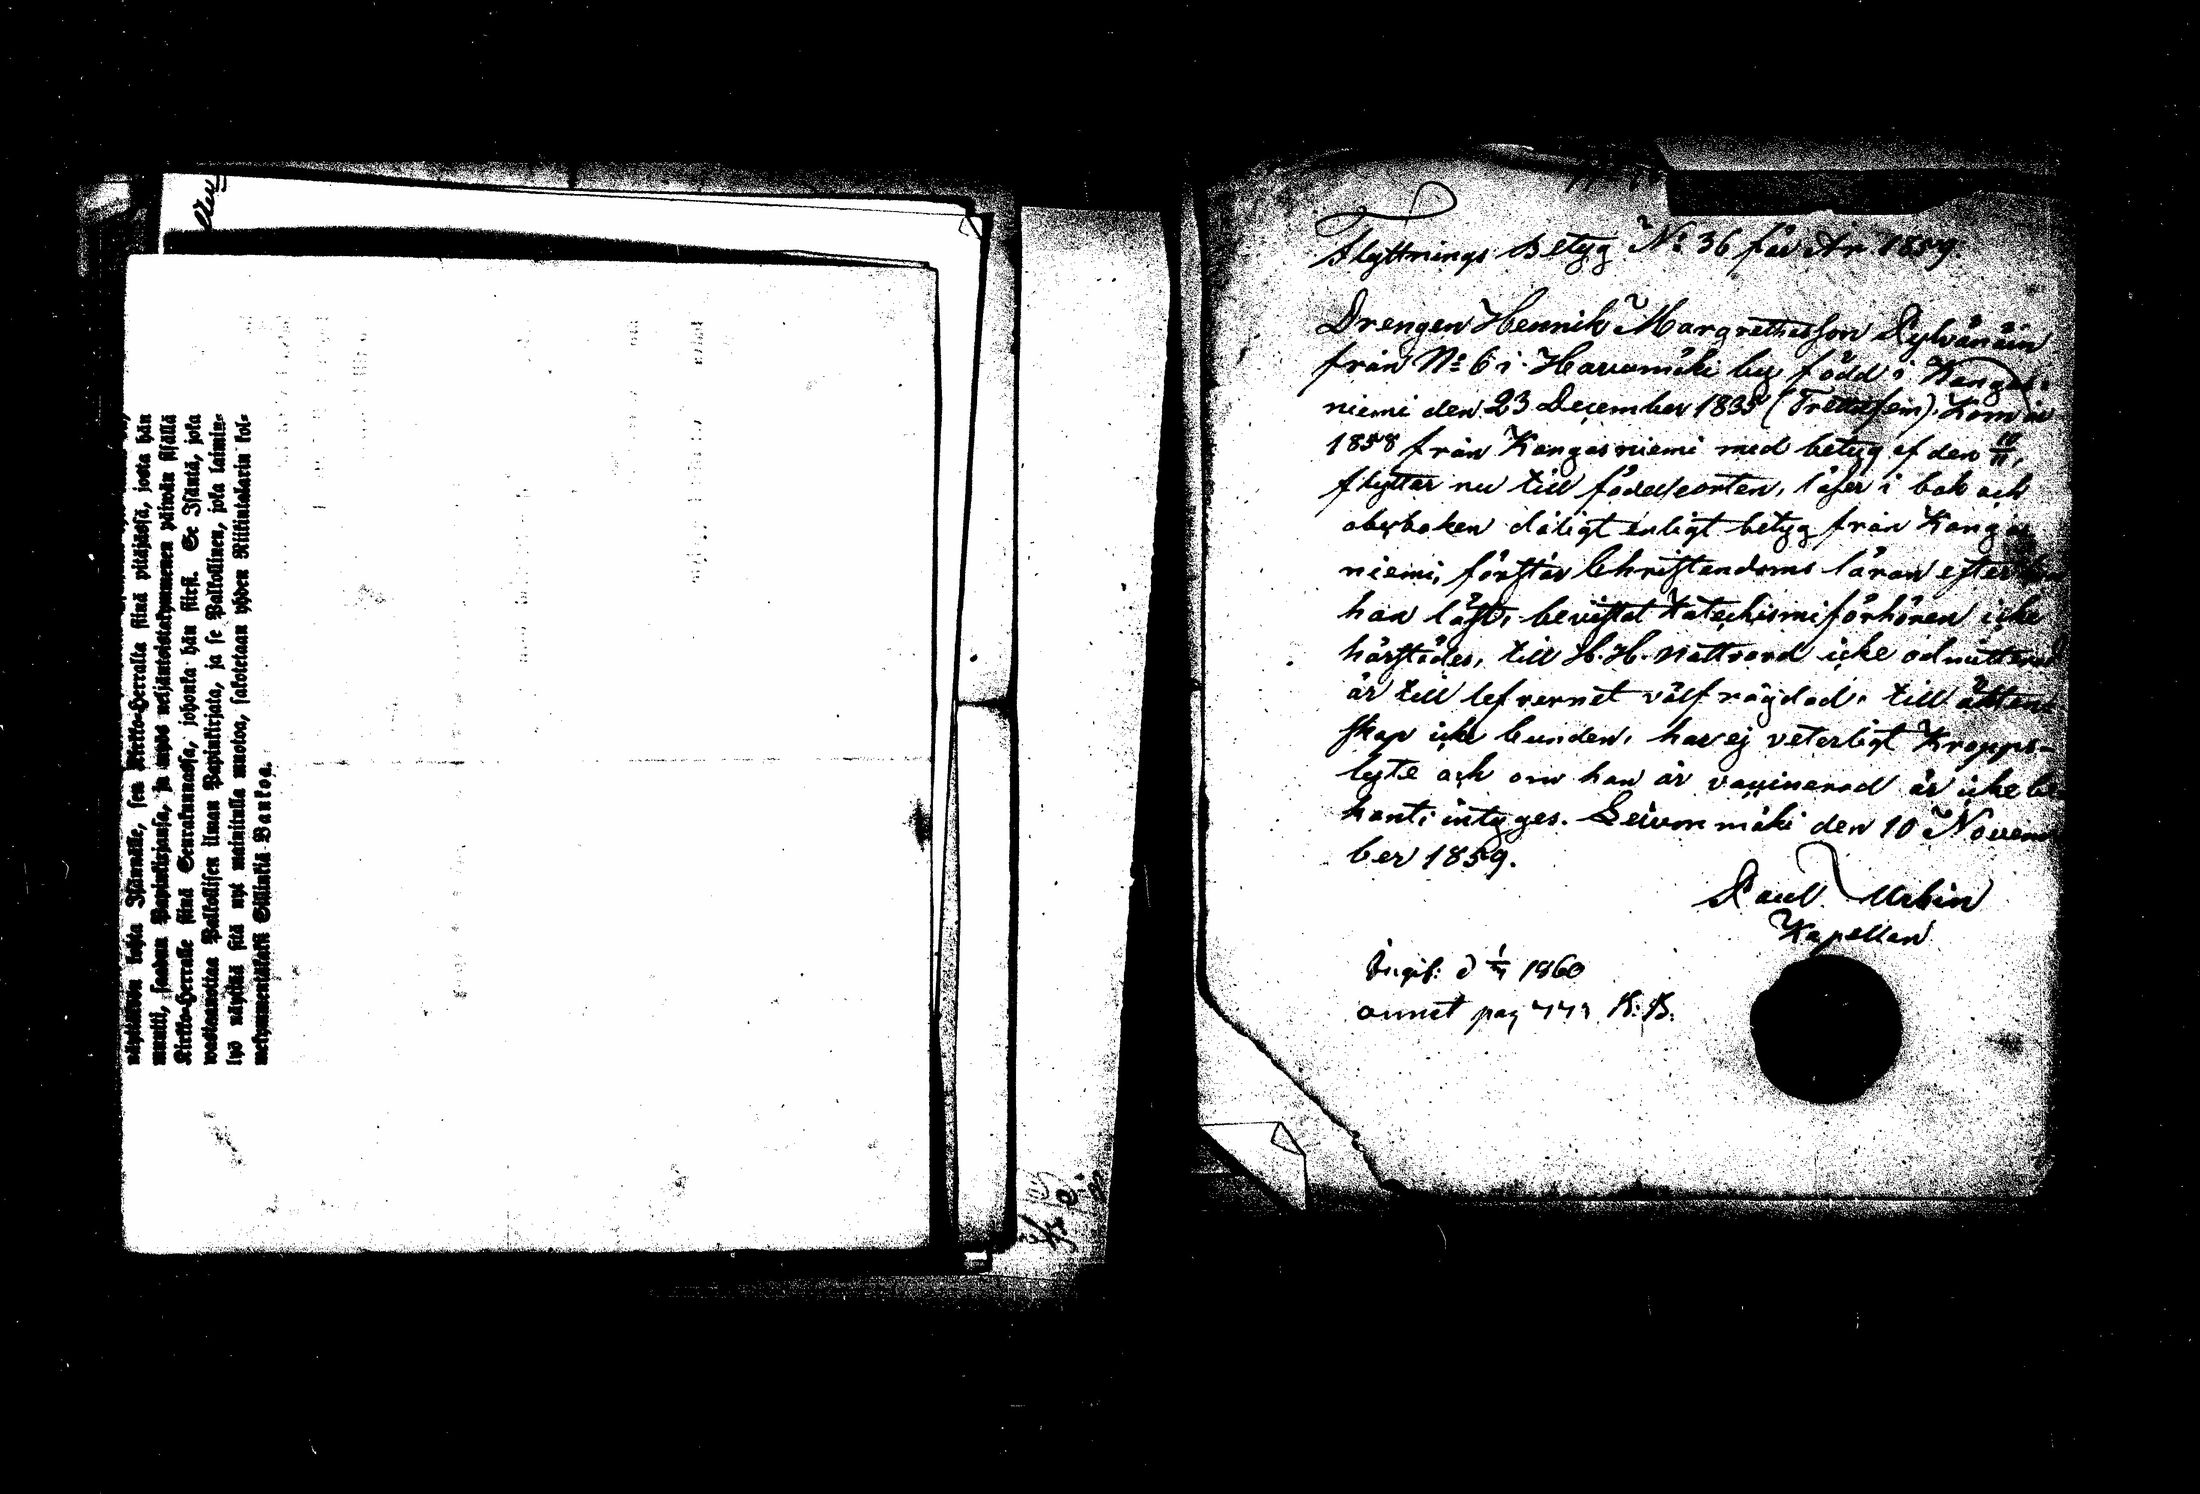 näyttäköön tämän Isännälle, sen Kirkko-Herralta siinä pitäjässä, josta hän
muutti, saadun Papinkirjansa, ja myös neljäntoistakymmenen päivän sisällä
Kirkko-Herralle siinä Seurakunnassa, johonka hän siirsi. Se Isäntä, jota
vastaanottaa Palkollisen ilman Papinkirjata, ja se Palkollinen, jota laimin-
lyö näyttää sitä nyt mainitulla muotoa, sakotetaan yhden Riikintalarin kol-
mekymmentäkaksi Sillinkiä Bankoa.
Flyttnings Betyg No 36 för År 1859.
Drengen Henrik Margrethesson Pylvänäin
från No 6 i Havumäki by född i Kangas-
niemi den 23 December 1835 (Trettifem). Kom in
1858 från Kangasniemi med betyg af den 10/11,
flyttar nu till födelseorten, läser i bok och
abcboken dåligt enligt betyg från Kangas
niemi, förstår Christendoms läran efter
han läst, bevistat Katechismiförhören icke
härstädes, till H. H. Nattvard icke admitterad
är till lefvernet välfrägdad, till äkten
skap icke bunden, har ej veterligt Kropps-
lyte och om han är vaccinerad är icke be
kant; intyges. Leivonmäki den 10 Novem
ber 1859.
Paul Urbin
Kapellan
Ingif: d 1860
annot pag 443 K. B.